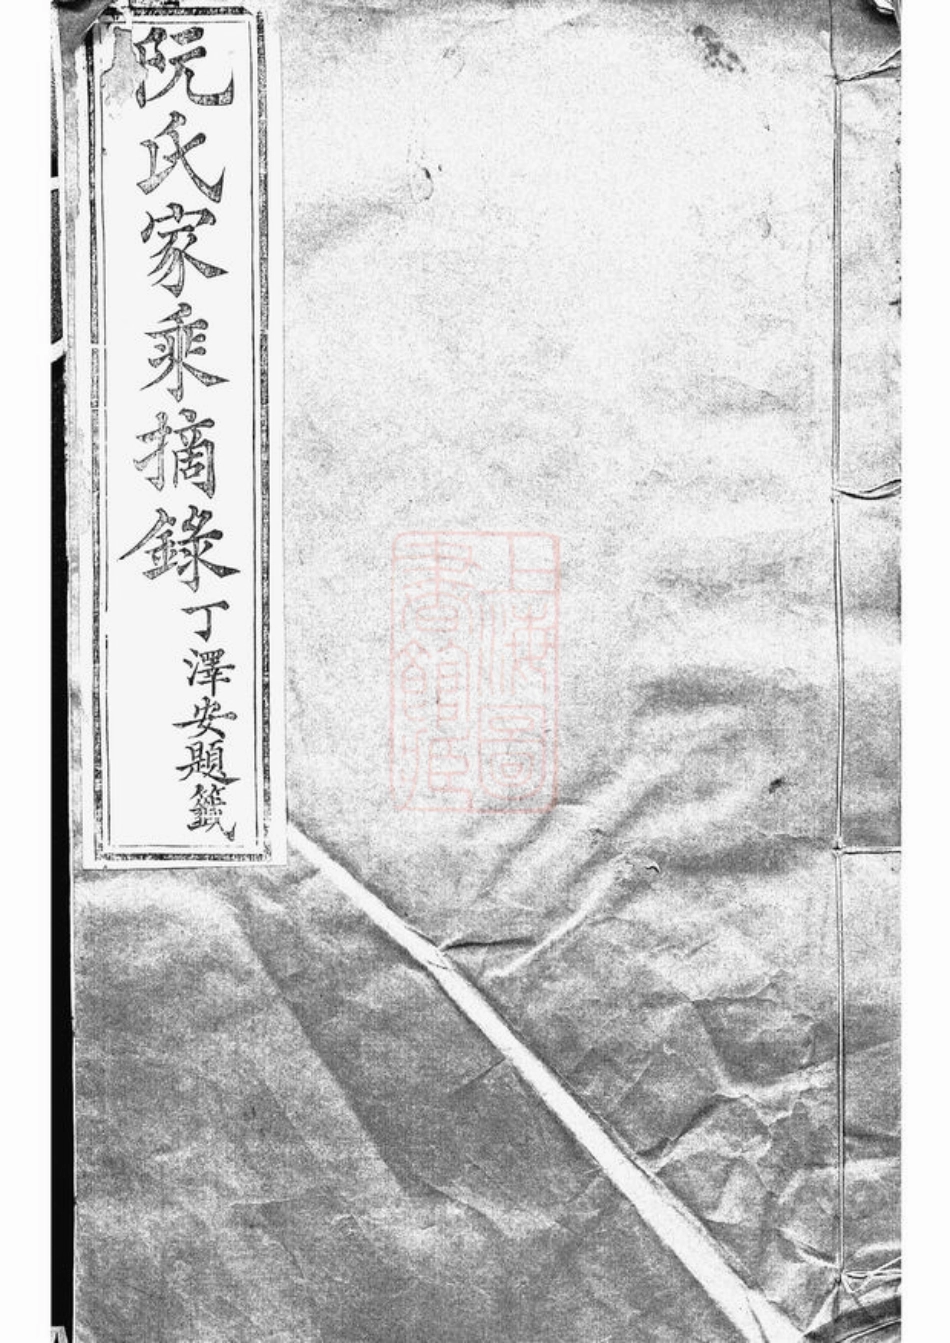 阮氏家乘摘錄
丁澤安題籤
上海圖
書館藏